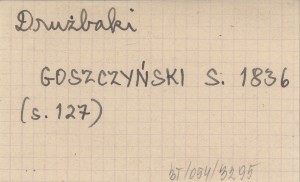 Drużbaki
GOSZCZYŃSKI S. 1836
(s. 127)
ST/054/3295